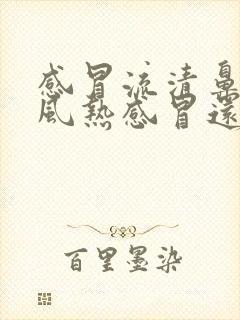 感冒流清鼻
风热感冒还
百里墨染